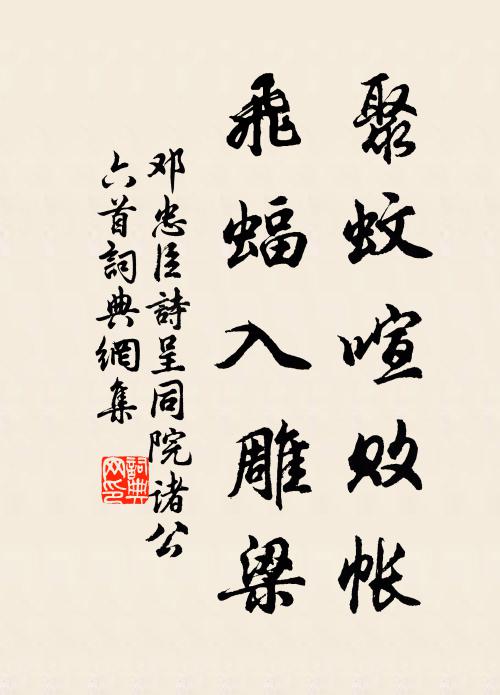 聚蚊喧败帐
飛蝠入雕梁
邓忠臣詩呈同院诸公
六首詞典網集
詞典
网印